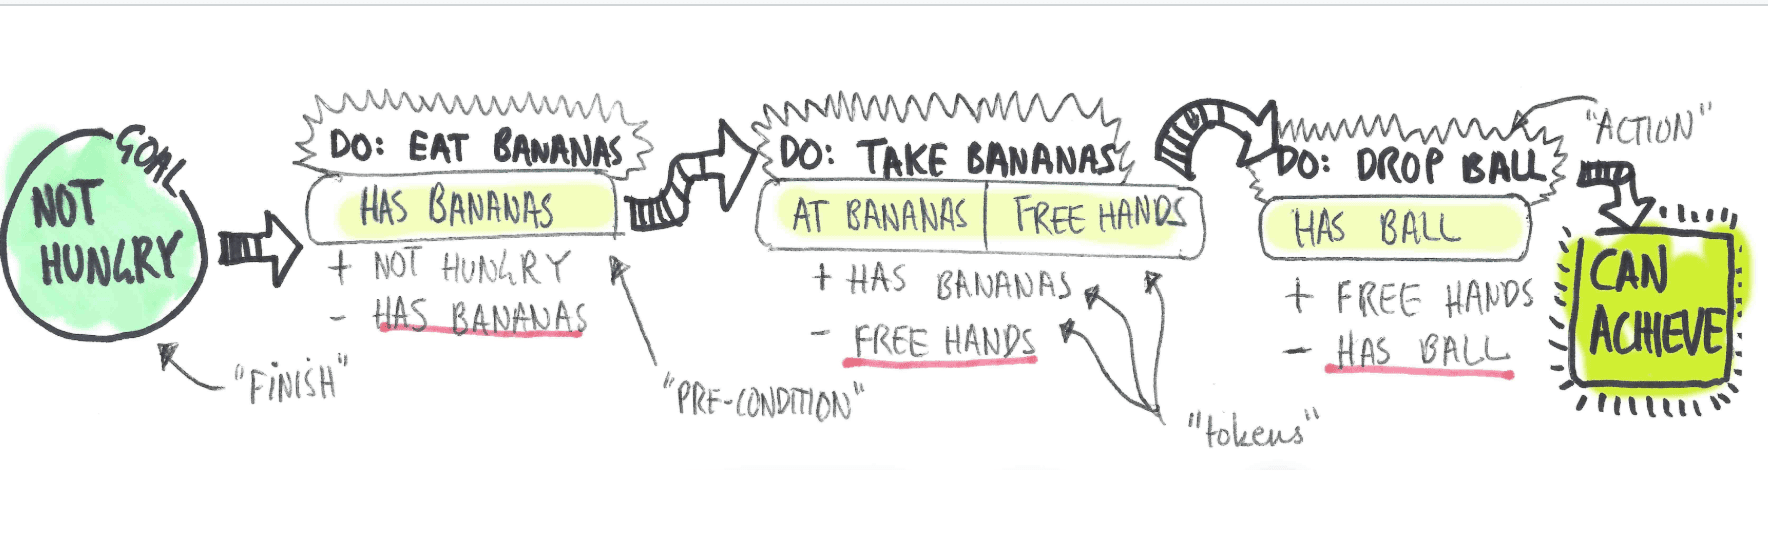 GOAL
NOT
HUNGRY
"FINISH"
DO: EAT BANANAS
HAS BANANAS
+ NOT HUNGRY
- HAS BANANAS
"PRE-CONDITION"
DO: TAKE BANANAS
AT BANANAS | FREE HANDS
+ HAS BANANAS
- FREE HANDS
"tokens"
"ACTION"
DO: DROP BALL
HAS BALL
+ FREE HANDS
- HAS BALL
CAN
ACHIEVE